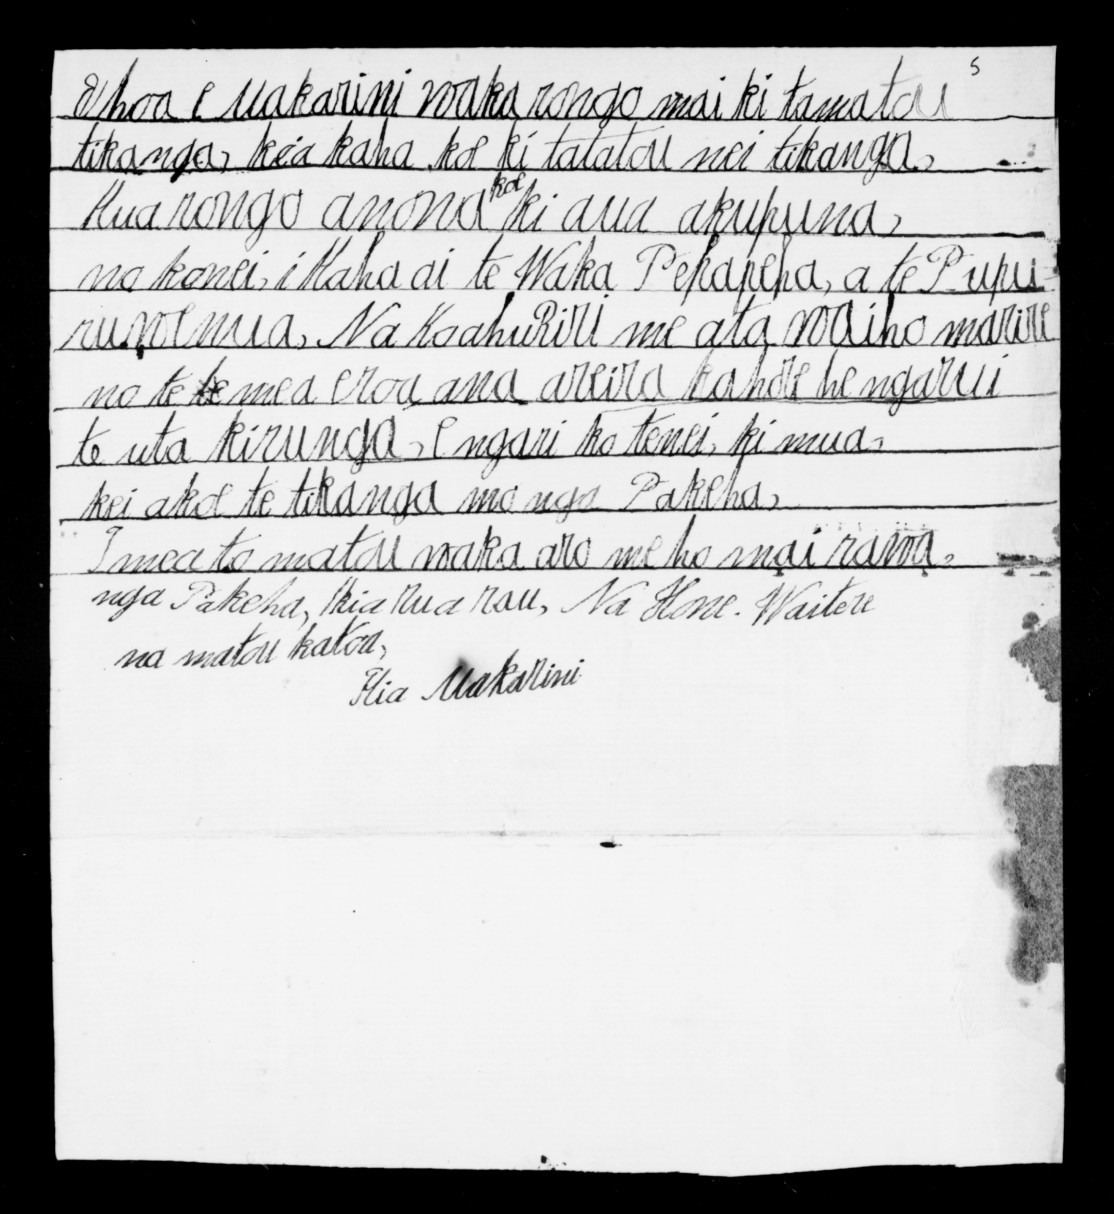 5
E hoa e Makarini waka rongo mai ki tamatou
tikanga, kia kaha koe ki tatatou nei tikanga,
Kua rongo anona koe ki aua akupuna,
no konei, i Kaha ai te Waka Pekapeha, a te Pupu
ruwenua, Na Koahu Riri me ata waiho marire
no te te mea eroa ana areira kahore he ngarui
te uta kirunga, e ngari ko tenei, ki mua,
kei akoe te tikanga mo nga Pakeha,
I mea to matou waka aro me ho mai rawa,
nga Pakeha, Kia rua rau, Na Hone. Waitere
na matou katoa,
Kia Makarini